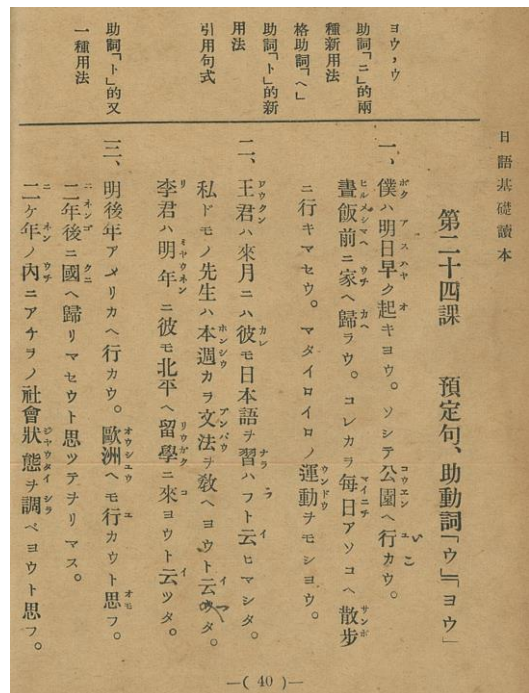 日語基礎讀本
第二十四課　預定句、助動詞「ウ」「ヨウ」
ヨウ，ウ
助詞「ニ」的兩
種新用法
格助詞「ヘ」
助詞「ト」的新
用法
引用句式
助詞「ト」的又
一種用法
一、僕ハ明日早ク起キヨウ。ソシテ公園ヘ行カウ。
晝飯前ニ家ヘ歸ラウ。コレカラ每日アソコヘ散步
ニ行キマセウ。マタイロイロノ運動ヲモシヨウ。
二、王君ハ來月ニハ彼モ日本語ヲ習ハフト云ヒマシタ。
私ドモノ先生ハ本週カラ文法ヲ敎ヘヨウト云ツタ。
李君ハ明年ニ彼モ北平ヘ留學ニ來ヨウト云ツタ。
三、明後年アメリカヘ行カウ。歐洲ヘモ行カウト思フ。
二年後ニ國ヘ歸リマセウト思ツテヲリマス。
二ケ年ノ內ニアチラノ社會狀態ヲ調ベヨウト思フ。
—( 40 )—